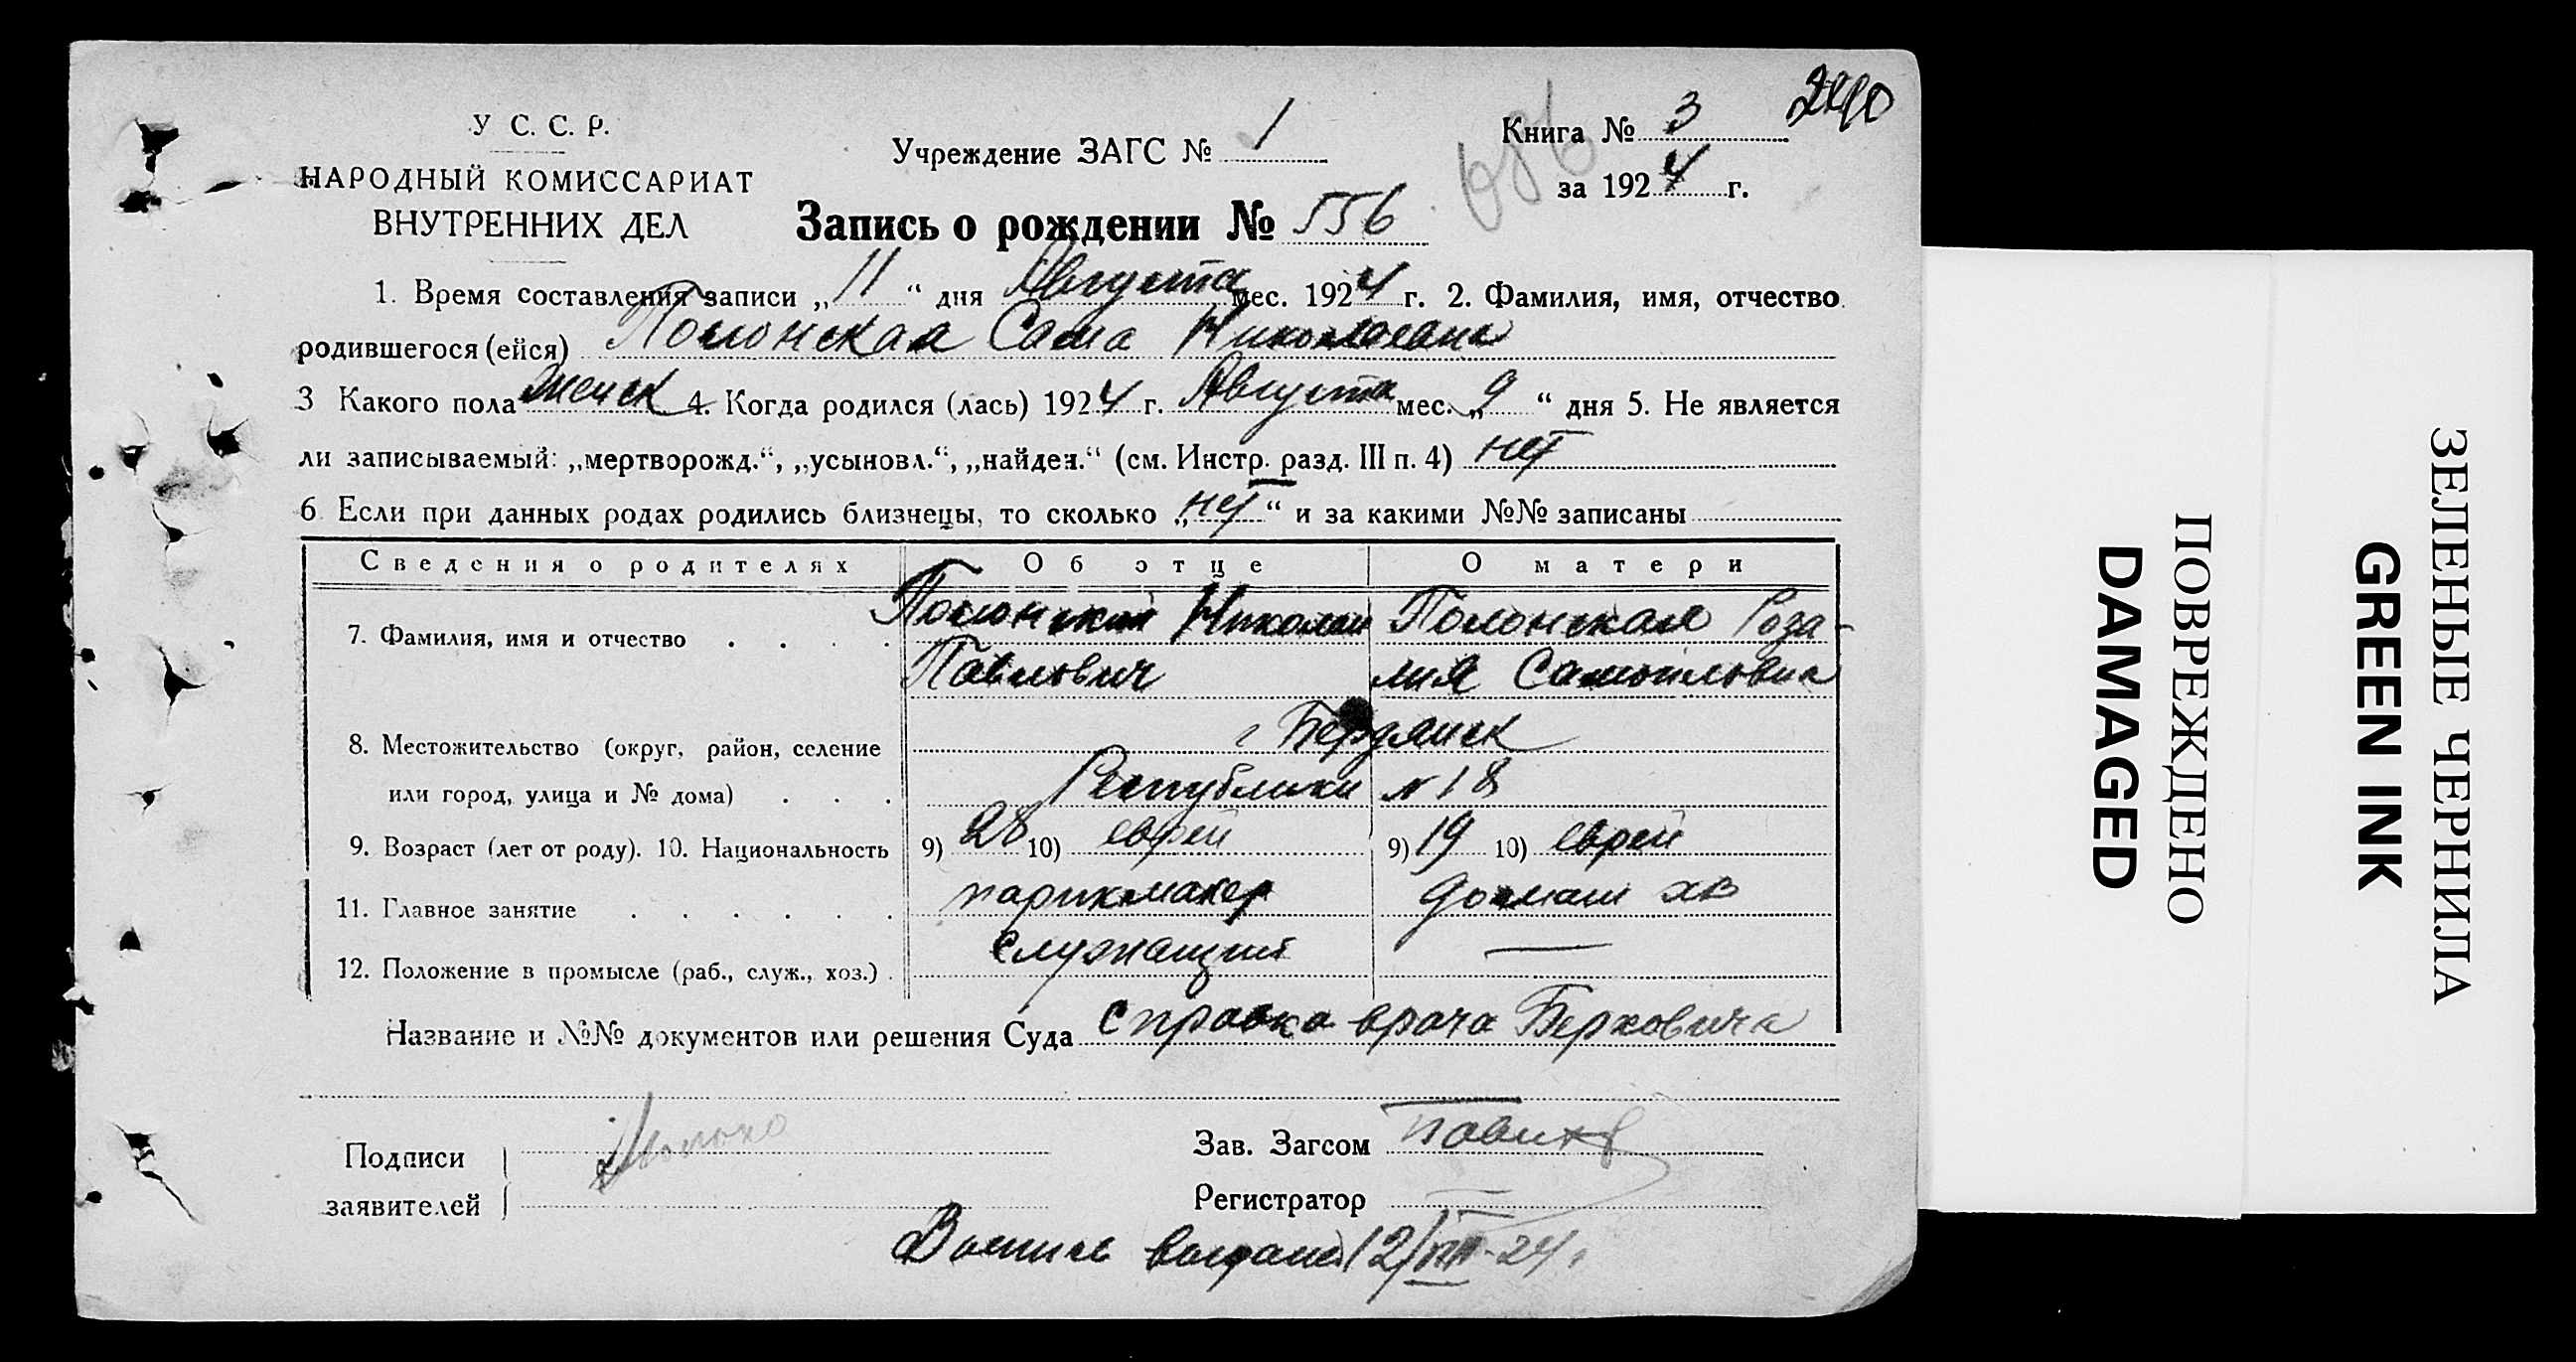 У С. С. Р.
НАРОДНЫЙ КОМИССАРИАТ
ВНУТРЕННИХ ДЕЛ
Учреждение ЗАГС № 1
Книга № 3
за 1924 г.
Запись о рождении № 556
686
1. Время составления записи „11“ дня Августа мес. 1924 г. 2. Фамилия, имя, отчество
родившегося (ейся) Полонская Сама Николаевна
3 Какого пола женск 4. Когда родился (лась) 1924 г. Августа мес. „9“ дня 5. Не является
ли записываемый: „мертворожд.“, „усыновл.“, „найден.“ (см. Инстр. разд. III п. 4) нет
6 Если при данных родах родились близнецы, то сколько „нет“ и за какими №№ записаны
Сведения о родителях Об отце О матери
7. Фамилия, имя и отчество . . . . Полонский Николай Полонская Роза-
Павлович лия Самойловна
8. Местожительство (округ, район, селение г Бердянск
или город, улица и № дома) . . . Республики № 18
9. Возраст (лет от роду). 10. Национальность 9) 28 10) еврей 9) 19 10) еврей
11. Главное занятие . . . . . парикмахер домаш хв
12. Положение в промысле (раб., служ., хоз.) . служащий —
Название и №№ документов или решения Суда справка врача Берковича
Подписи
заявителей
Зав. Загсом
Регистратор
Выпись выдана 12/VIII-24г
ПОВРЕЖДЕНО
DAMAGED
ЗЕЛЕНЫЕ ЧЕРНИЛА
GREEN INK